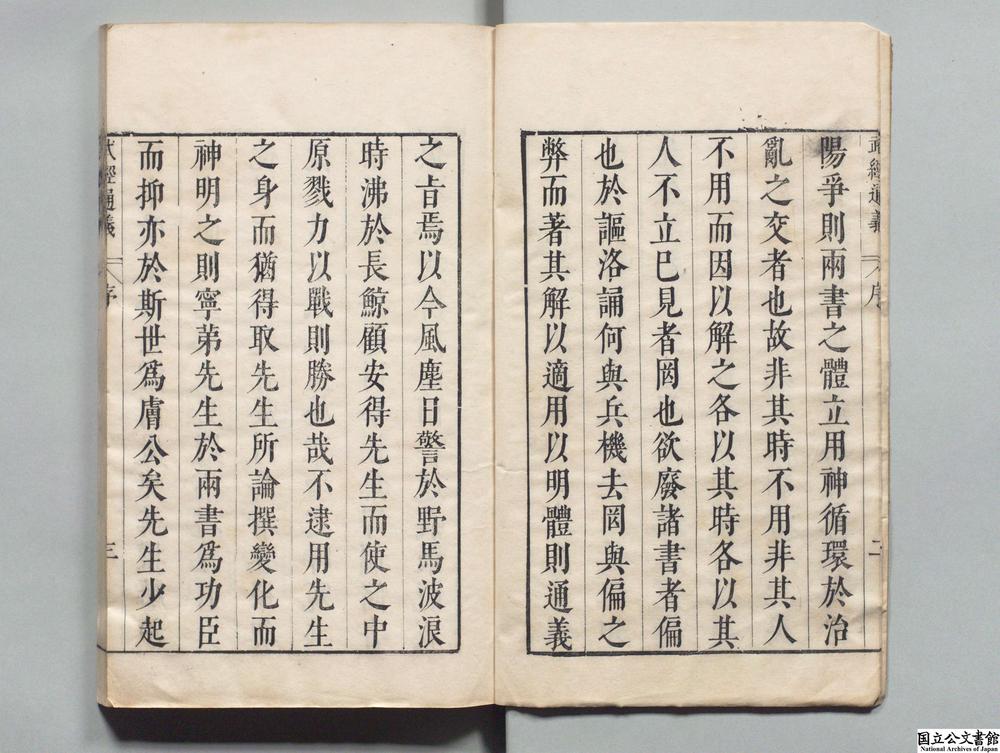 武經通義
序
二
陽爭則兩書之體立用神循環於治
亂之交者也故非其時不用非其人
不用而因以解之各以其時各以其
人不立已見者罔也欲廢諸書者偏
也於謳洛誦何與兵機去罔與偏之
弊而著其解以適用以明體則通義
之㫖焉以今風塵日警於野馬波浪
時沸於長鯨顧安得先生而使之中
原戮力以戰則勝也哉不逮用先生
之身而猶得取先生所論撰變化而
神明之則寧苐先生於兩書爲功臣
而抑亦於斯世爲膚公矣先生少起
武經通義
序
三
国立公文書館
National Archives of Japan